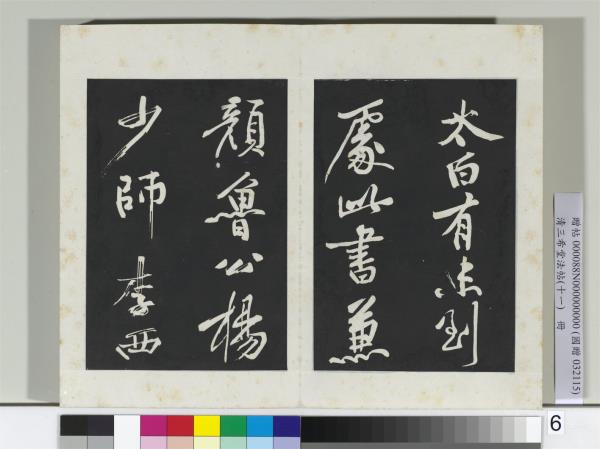 太白有未到
處此書兼
顏魯公楊
少師李西
贈帖 000088N000000000 (國贈 032115)
清三希堂法帖(十一) 冊
6